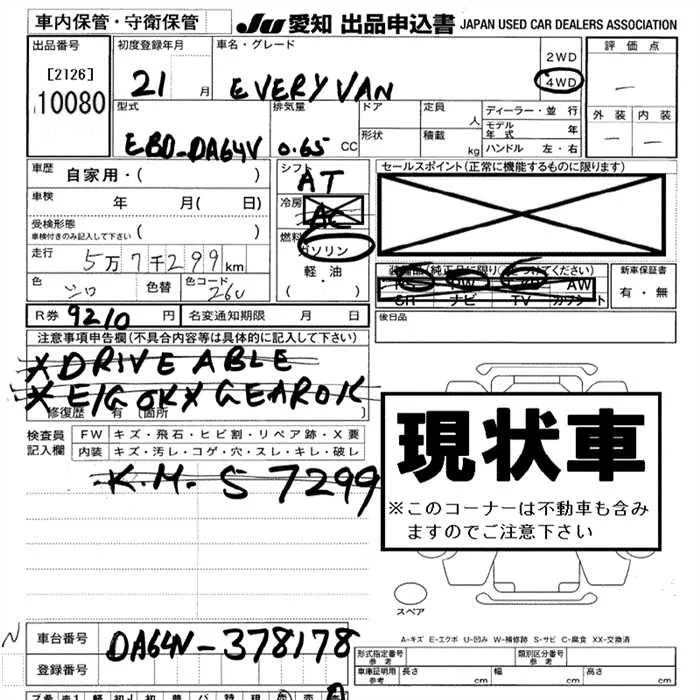 車内保管・守衛保管
JU 愛知 出品申込書 JAPAN USED CAR DEALERS ASSOCIATION
出品番号 初度登録年月 車名・グレード 2WD 評価点
[2126] 21 月 EVERY VAN 4WD —
10080
型式 排気量 ドア 定員 人 ディーラー・並行 外装 内装
形状 積載 kg モデル年式 年 — —
EBD-DA64V 0.65 CC ハンドル 左・右
車歴 自家用・( ) シフト AT セールスポイント(正常に機能するものに限ります)
車検 年 月( 日) 冷房 AC
受検形態 車検付きのみ記入して下さい ( ) 燃料 ガソリン
走行 5万7千299km 軽・油
色 シロ 色替 色コード 26U ( ・ )
装備品(純正品に限り〇をつけてください) 新車保証書
PS PW AW 有・無
ナビ TV
R券 9210 円 名変通知期限 月 日 後日品
注意事項申告欄(不具合内容等は具体的に記入して下さい)
*DRIVE ABLE
*E/G OK * GEAR OK
修復歴 有 (箇所 )
検査員記入欄 FW キズ・飛石・ヒビ割・リペア跡・X要
内装 キズ・汚レ・コゲ・穴・スレ・キレ・破レ
K.M. 57299
現状車
※このコーナーは不動車も含み
ますのでご注意下さい
スペア
A-キズ E-エクボ U-凹み W-補修跡 S-サビ C-腐食 XX-交換済
車台番号 DA64V-378178
登録番号
形式指定番号 参考 類別区分番号 参考
車庫証明用 参考 長さ cm 幅 cm 高さ cm